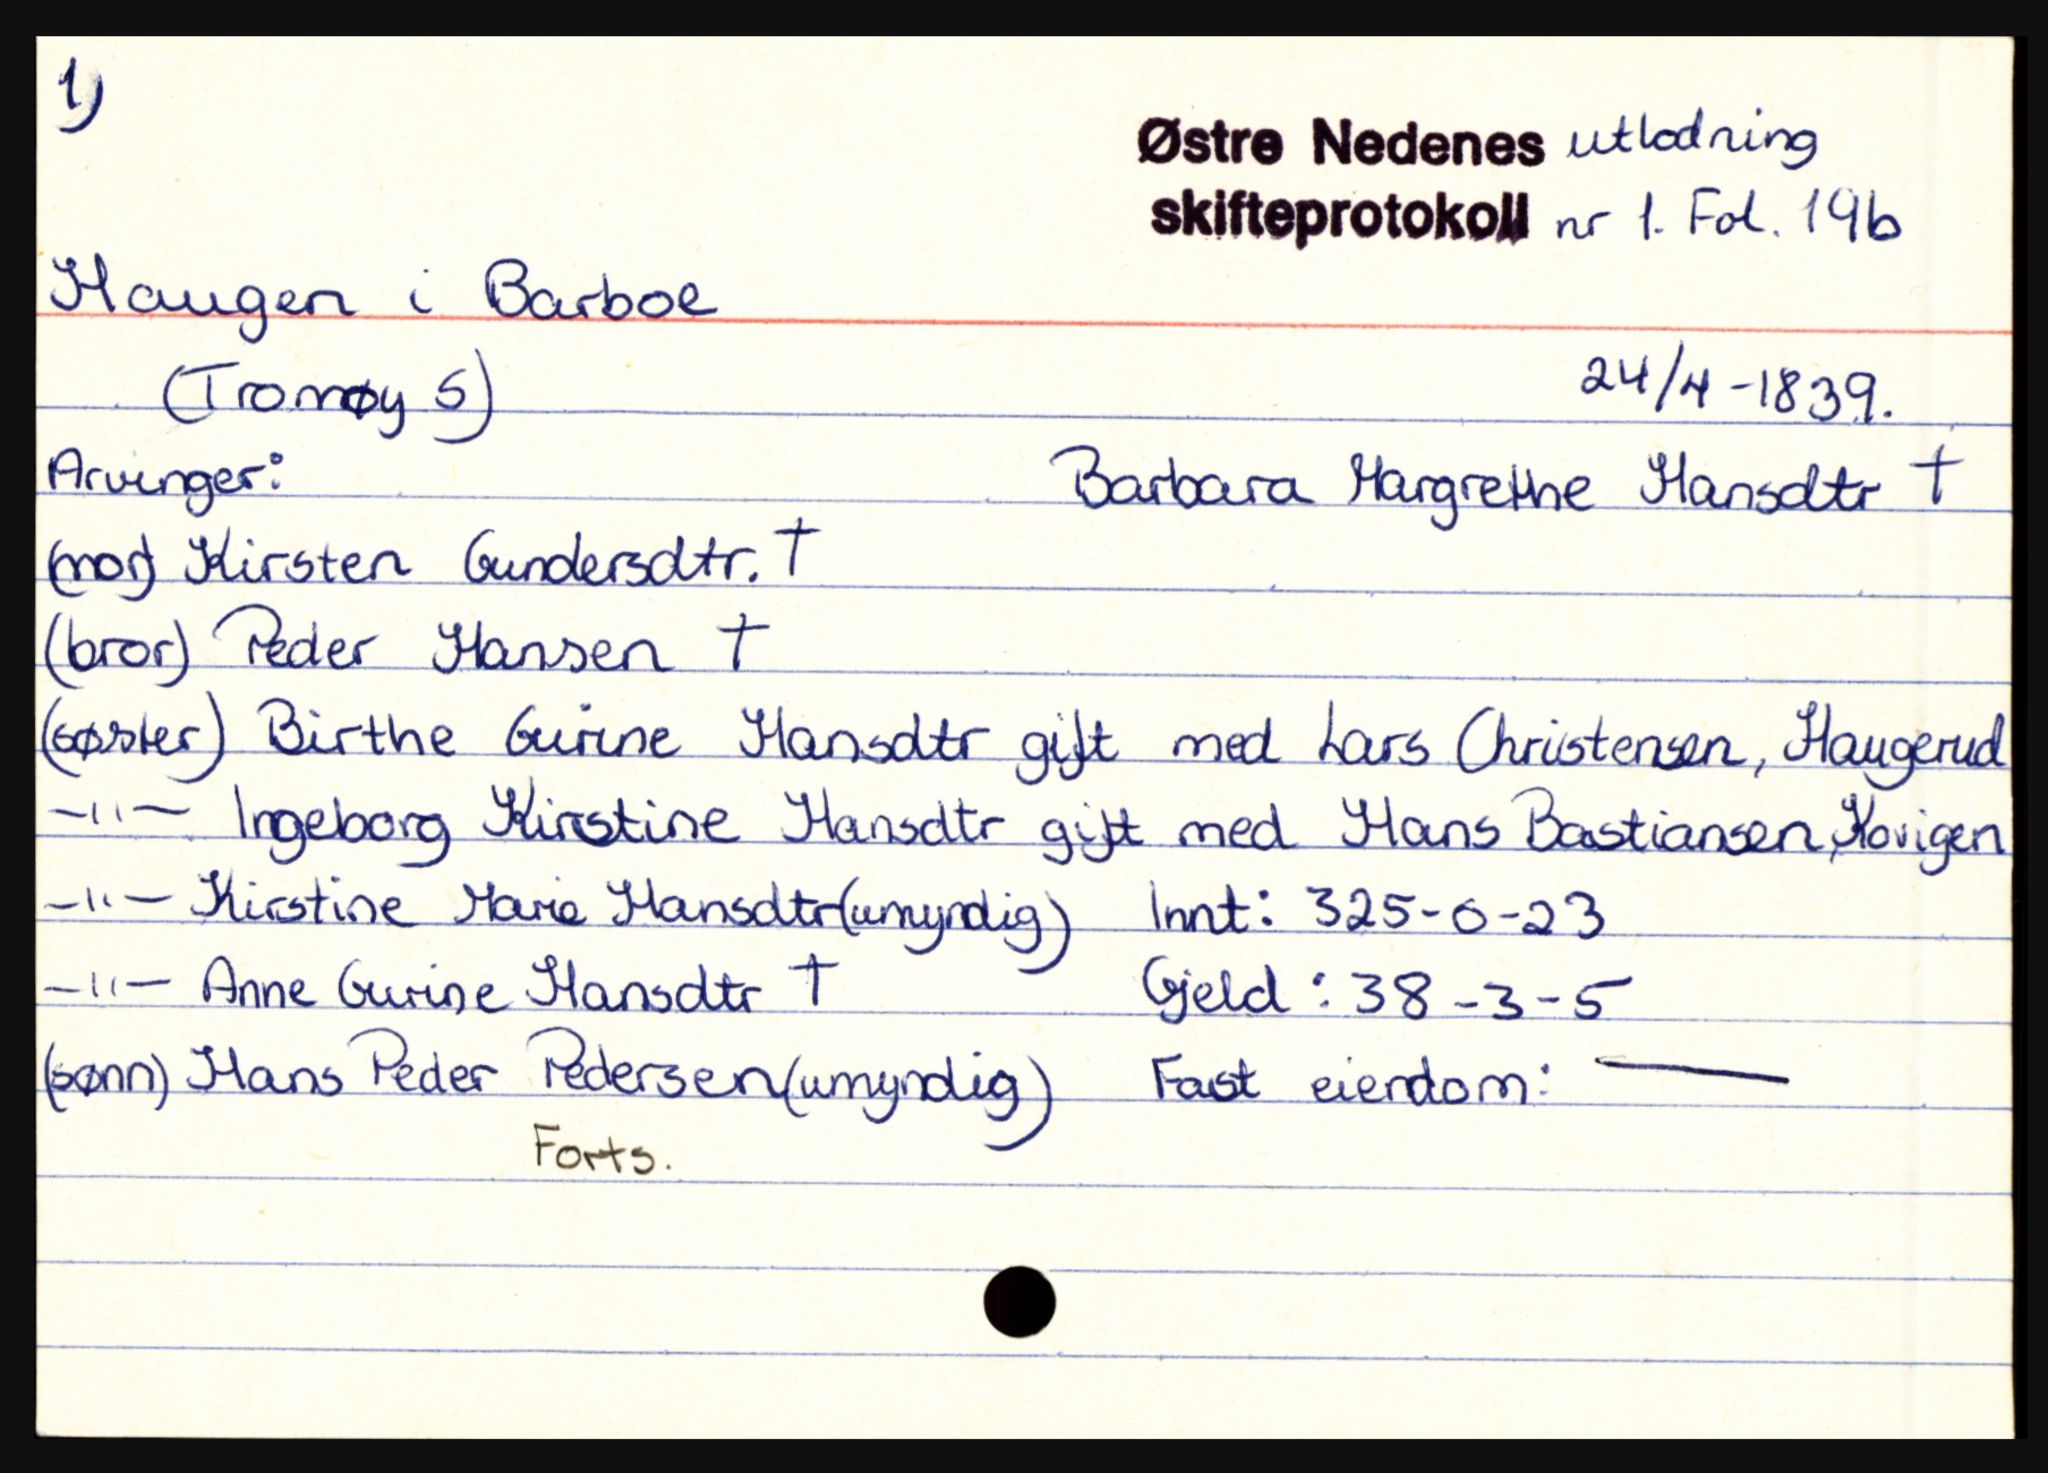 1)
Østre Nedenes utlodning
skifteprotokoll nr 1. Fol. 19b
Haugen i Barboe
(Tromøy S)
24/4 - 1839.
Arvinger:
Barbara Margrethe Hansdtr †
(mor) Kirsten Gundersdtr. †
(bror) Peder Hansen †
(søster) Birthe Gurine Hansdtr gift med Lars Christensen, Haugerud
-"- Ingeborg Kirstine Hansdtr gift med Hans Bastiansen, Kovigen
-"- Kirstine Marie Hansdtr (umyndig) Innt: 325-0-23
-"- Anne Gurine Hansdtr † Gjeld: 38-3-5
(sønn) Hans Peder Pedersen (umyndig) Fast eiendom: —
Forts.